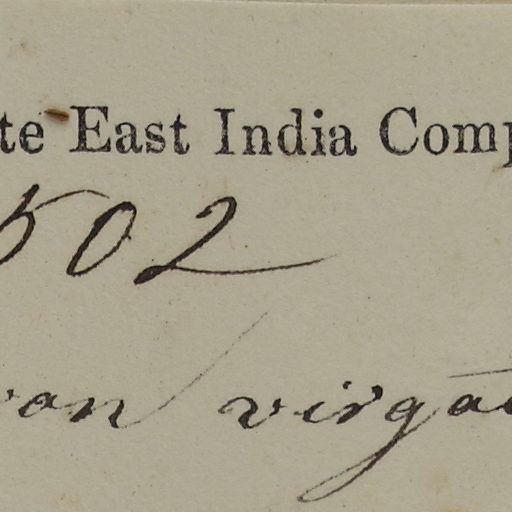 te East India Comp
502
on virgat